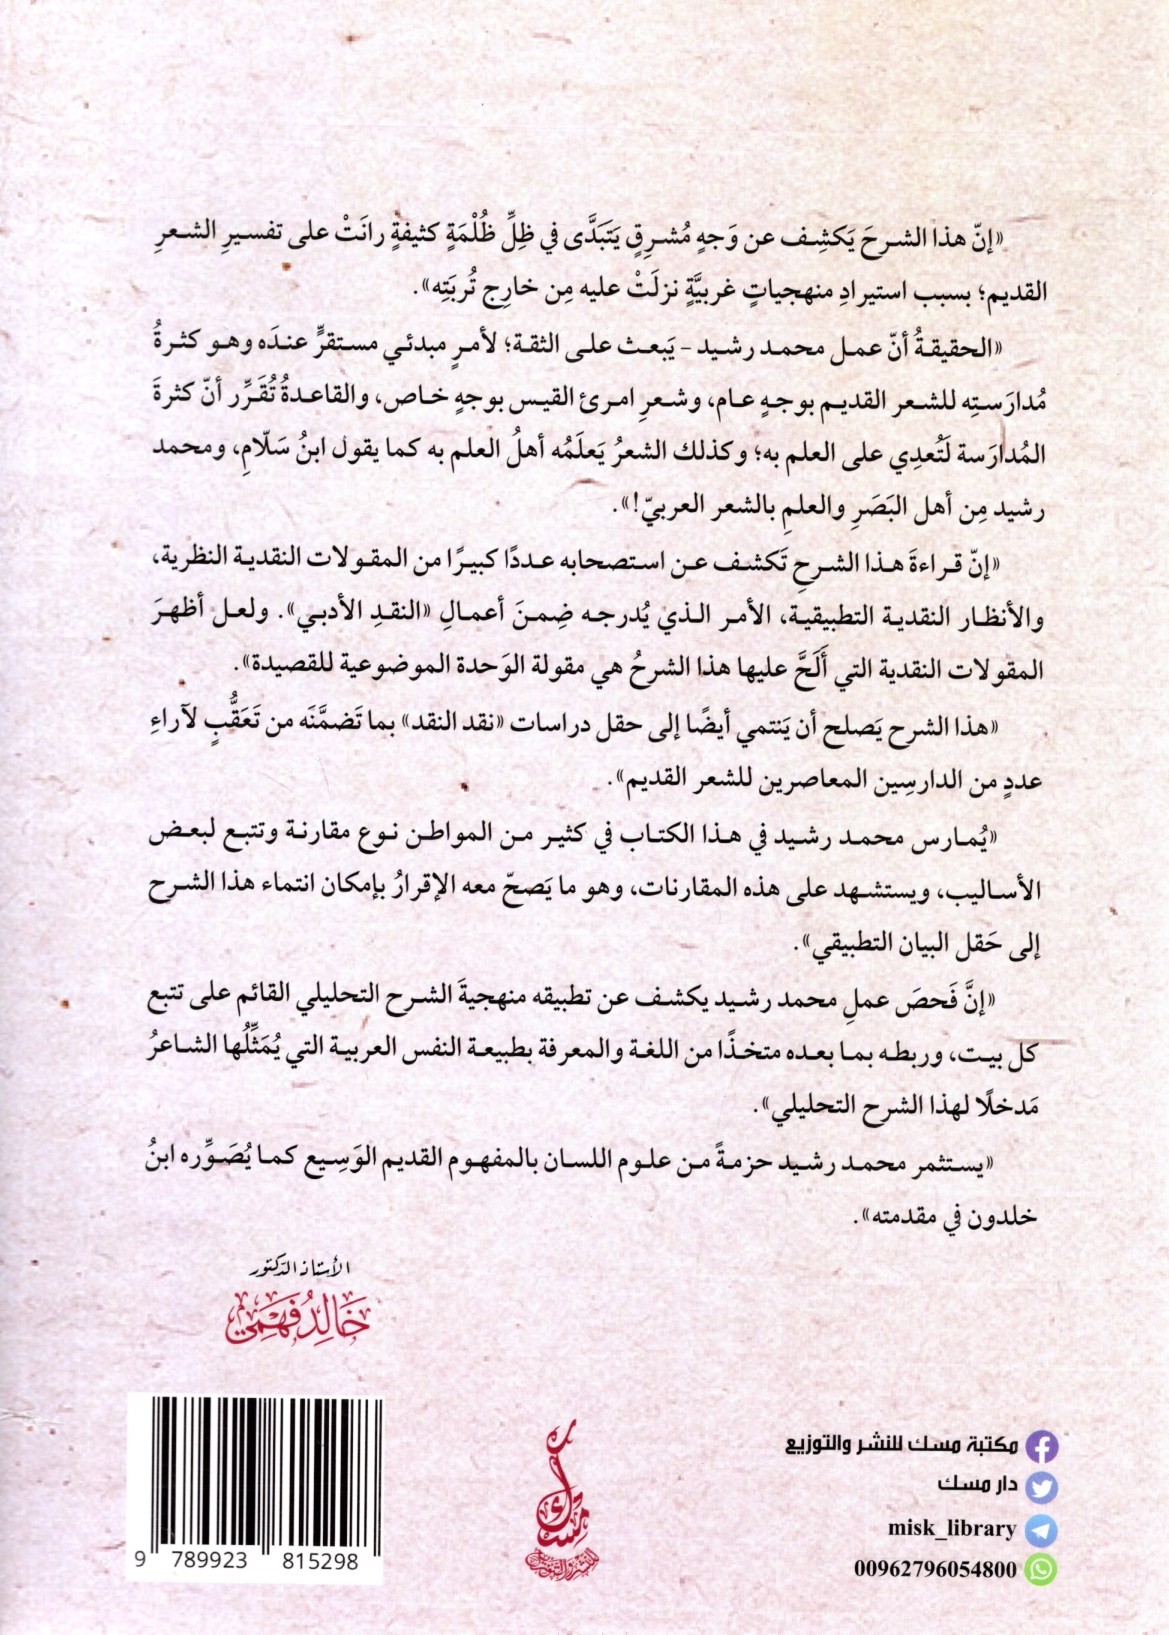 «إنّ هذا الشرحَ يَكشِف عن وَجهٍ مُشرِقٍ يَتَبَدَّى في ظِلِّ ظُلْمَةٍ كثيفةٍ رانَتْ على تفسيرِ الشعرِ
القديم؛ بسبب استيرادِ منهجياتٍ غربيَّةٍ نزلَتْ عليه مِن خارِج تُربَتِه».
«الحقيقةُ أنّ عمل محمد رشيد – يَبعث على الثقة؛ لأمرٍ مبدئي مستقرٍّ عندَه وهو كثرةُ
مُدارَستِه للشعر القديم بوجهٍ عام، وشعرِ امرئ القيس بوجهٍ خاص، والقاعدةُ تُقَرِّر أنّ كثرةَ
المُدارَسة لَتُعدِي على العلم به؛ وكذلك الشعرُ يَعلَمُه أهلُ العلم به كما يقول ابنُ سَلّامِ، ومحمد
رشيد مِن أهل البَصَرِ والعلمِ بالشعر العربيّ!».
«إنّ قراءةَ هذا الشرحِ تَكشف عن استصحابه عددًا كبيرًا من المقولات النقدية النظرية،
والأنظار النقدية التطبيقية، الأمر الذي يُدرجه ضِمنَ أعمالِ «النقدِ الأدبي». ولعل أظهرَ
المقولات النقدية التي أَلَحَّ عليها هذا الشرحُ هي مقولة الوَحدة الموضوعية للقصيدة».
«هذا الشرح يَصلح أن يَنتمي أيضًا إلى حقل دراسات «نقد النقد» بما تَضمَّنَه من تَعَقُّبٍ لآراءِ
عددٍ من الدارسِين المعاصرين للشعر القديم».
«يُمارس محمد رشيد في هذا الكتاب في كثير من المواطن نوع مقارنة وتتبع لبعض
الأساليب، ويستشهد على هذه المقارنات، وهو ما يَصحّ معه الإقرارُ بإمكان انتماء هذا الشرح
إلى حَقل البيان التطبيقي».
«إنَّ فَحصَ عملِ محمد رشيد يكشف عن تطبيقه منهجيةَ الشرح التحليلي القائم على تتبع
كل بيت، وربطه بما بعده متخذًا من اللغة والمعرفة بطبيعة النفس العربية التي يُمَثِّلُها الشاعرُ
مَدخلًا لهذا الشرح التحليلي».
«يستثمر محمد رشيد حزمةً من علوم اللسان بالمفهوم القديم الوَسِيع كما يُصَوِّره ابنُ
خلدون في مقدمته».
الأستاذ الدكتور
خَالِد فَهْمِي
مكتبة مسك للنشر والتوزيع
دار مسك
misk_library
00962796054800
مسك
للنشر والتوزيع
9 789923 815298